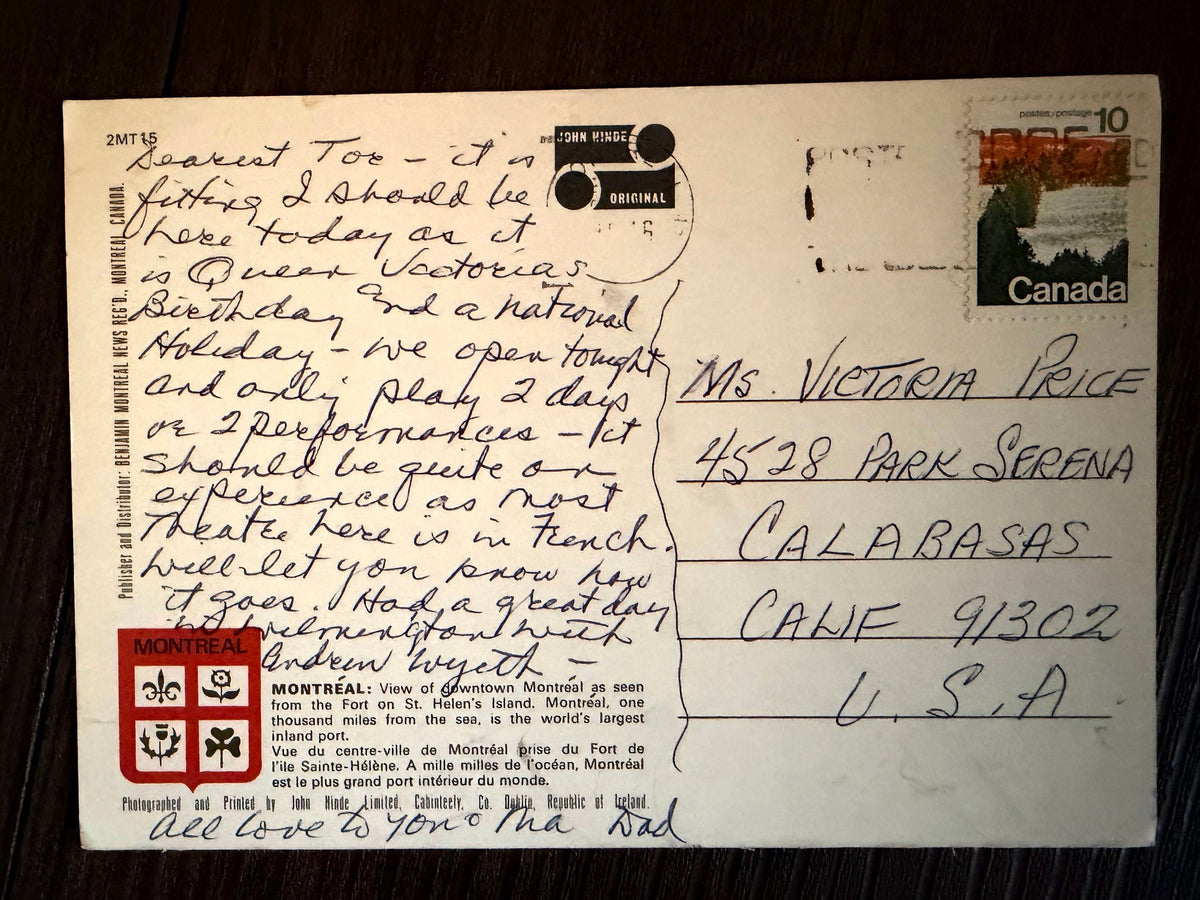 2MT15
JOHN HINDE
ORIGINAL
Dearest Tor - it is
fitting I should be
here today as it
is Queen Victorias
Birthday and a national
Holiday - we open tonight
and only play 2 days
or 2 performances - it
should be quite an
experience as most
Theatre here is in French.
Will let you know how
it goes. Had a great day
in Wilmington with
Andrew Wyeth -
All love to you & Ma Dad
Publisher and Distributor: BENJAMIN MONTREAL NEWS REG'D., MONTREAL, CANADA.
MONTREAL
MONTRÉAL: View of downtown Montréal as seen
from the Fort on St. Helen's Island. Montréal, one
thousand miles from the sea, is the world's largest
inland port.
Vue du centre-ville de Montréal prise du Fort de
l'ile Sainte-Hélène. A mille milles de l'océan, Montréal
est le plus grand port intérieur du monde.
Photographed and Printed by John Hinde Limited, Cabinteely, Co. Dublin, Republic of Ireland.
postes/postage 10
Canada
Ms. VICTORIA PRICE
4528 PARK SERENA
CALABASAS
CALIF 91302
U.S.A